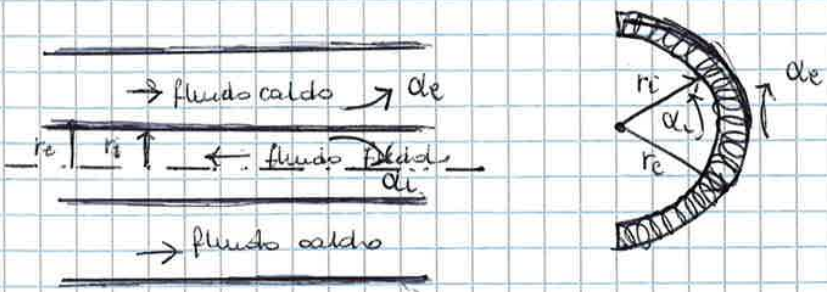 → fluido caldo αe
re ri ← fluido freddo
αi
→ fluido caldo
ri αi αe
re